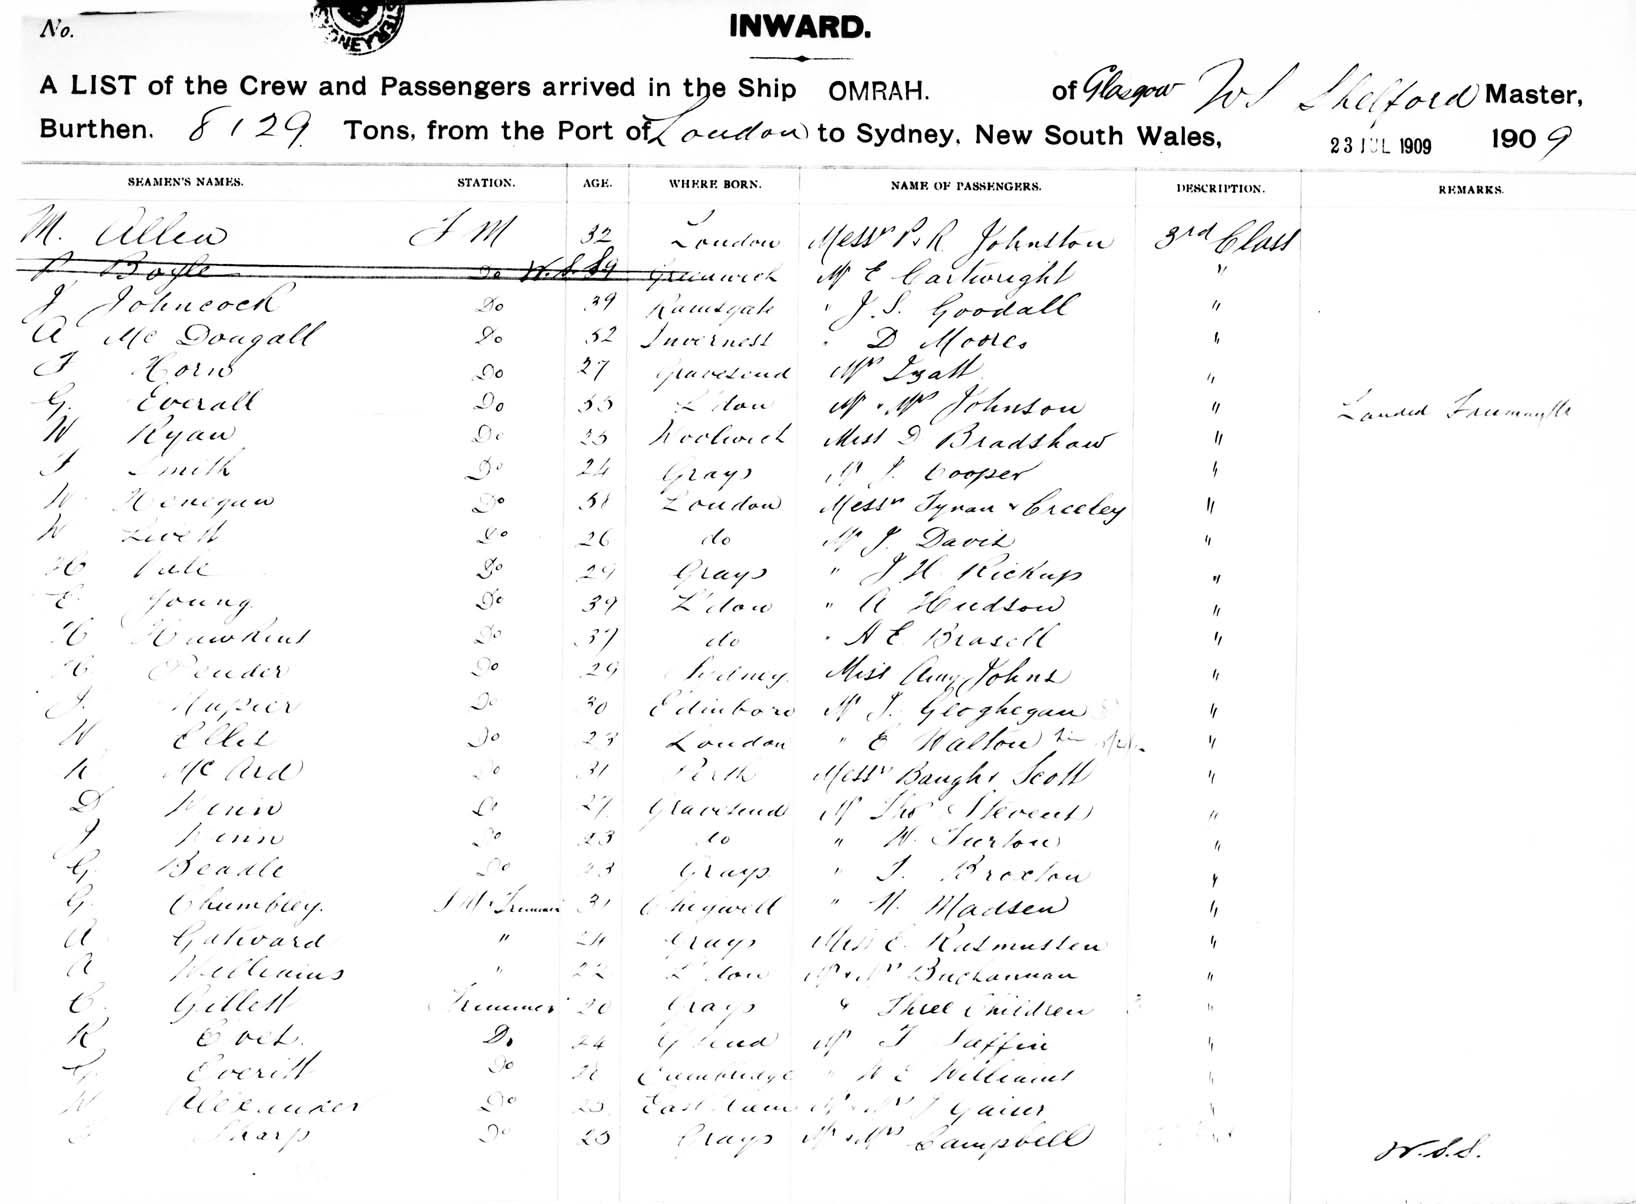 No.
INWARD.
A LIST of the Crew and Passengers arrived in the Ship OMRAH. of Glasgow W S Shelford Master,
Burthen. 8129 Tons, from the Port of London to Sydney, New South Wales, 23 JUL 1909 1909
SEAMEN'S NAMES. STATION. AGE. WHERE BORN. NAME OF PASSENGERS. DESCRIPTION. REMARKS.
M. Allen F M 32 London Messrs P & R Johnston 3rd Class
Boyle Do W.S.S 39 Greenwich Mr E Cartwright "
J Johncock Do 39 Ramsgate " J. S. Goodall "
A McDougall Do 32 Inverness " D Moores "
F Horn Do 27 Gravesend Mrs Lyatt "
G. Everall Do 33 L'don Mr & Mrs Johnson " Landed Fremantle
W Ryan Do 25 Woolwich Miss D Bradshaw "
F Smith Do 24 Grays Mr J. Cooper "
W Henegan Do 31 London Messrs Tynan & Creeley "
W Livett Do 26 do Mr J. Davis "
H Vale Do 29 Grays " J H. Rickup "
E. Young Do 39 L'don " A Hudson "
H Hawkins Do 37 do " A E. Brasell "
H Pender Do 29 Sydney Miss Amy Johns "
J. Napier Do 30 Edinboro Mr J. Geoghegan "
W Ellis Do 23 London " E Walton "
R McArd Do 31 Perth Messrs Baugh & Scott "
D Winn Do 27 Gravesend Mr Thos Stevens "
J Winn Do 23 do " W. Turton "
G. Beadle Do 23 Grays " J. Broxton "
G. Chumbley. 31 Chigwell " N. Madsen "
A Gatward " 24 Grays Miss E. Rasmussen "
A Williams " 22 L'don Mr & Mrs Buchannan "
C. Gillett Trimmer 20 Grays & Three Children 3 "
R Eves. Do 24 G'send Mr T Saffin "
G. Everitt Do 21 Cambridge " W E Williams "
W Alexander Do 25 East Ham Mr & Mrs J Gainer "
Sharp Do 25 Grays Mr & Mrs Campbell
W.S.S.